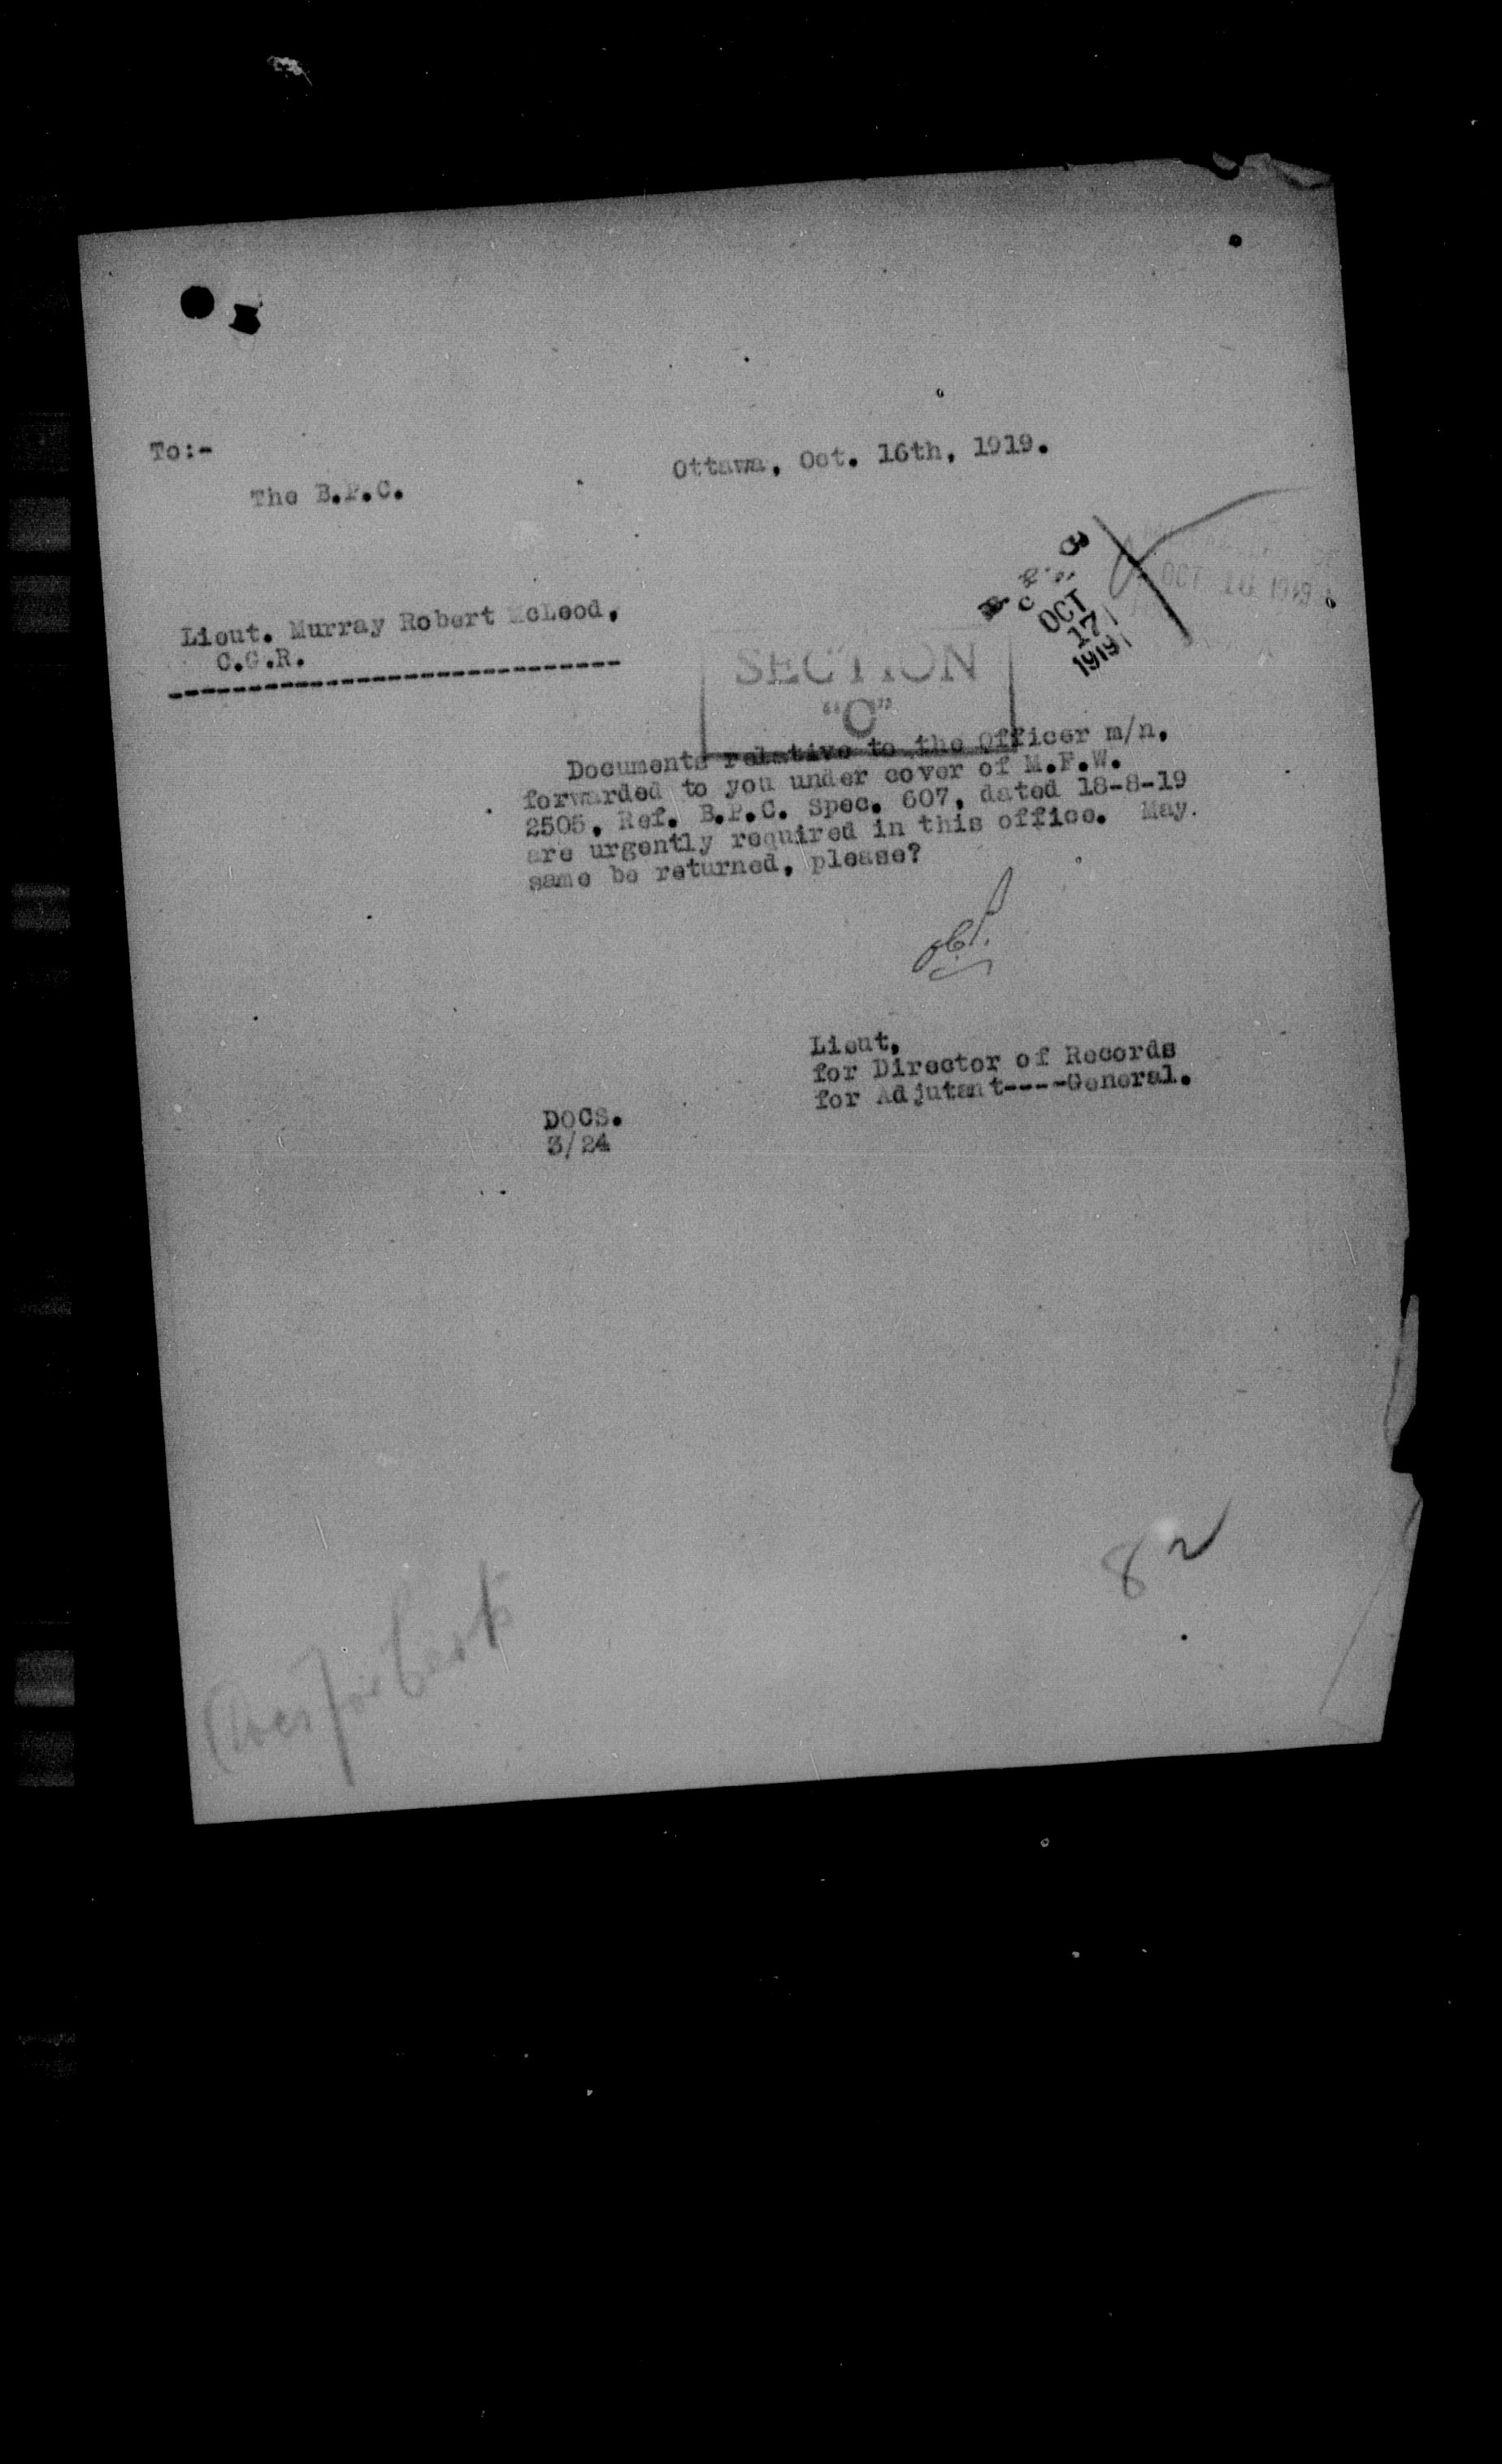 To:-
Ottawa, Oct. 16th, 1919.
The B.P.C.
OCT
17
1919
OCT 1919
Lieut. Murray Robert McLeod,
C.G.R.
SECTION
"C"
Documents relative to the Officer m/n.
forwarded to you under cover of M.F.W.
2505, Ref. B.P.C. Spec. 607, dated 18-8-19
are urgently required in this office. May
same be returned, please?
Lieut,
for Director of Records
for Adjutant----General.
DOCS.
3/24
8
for